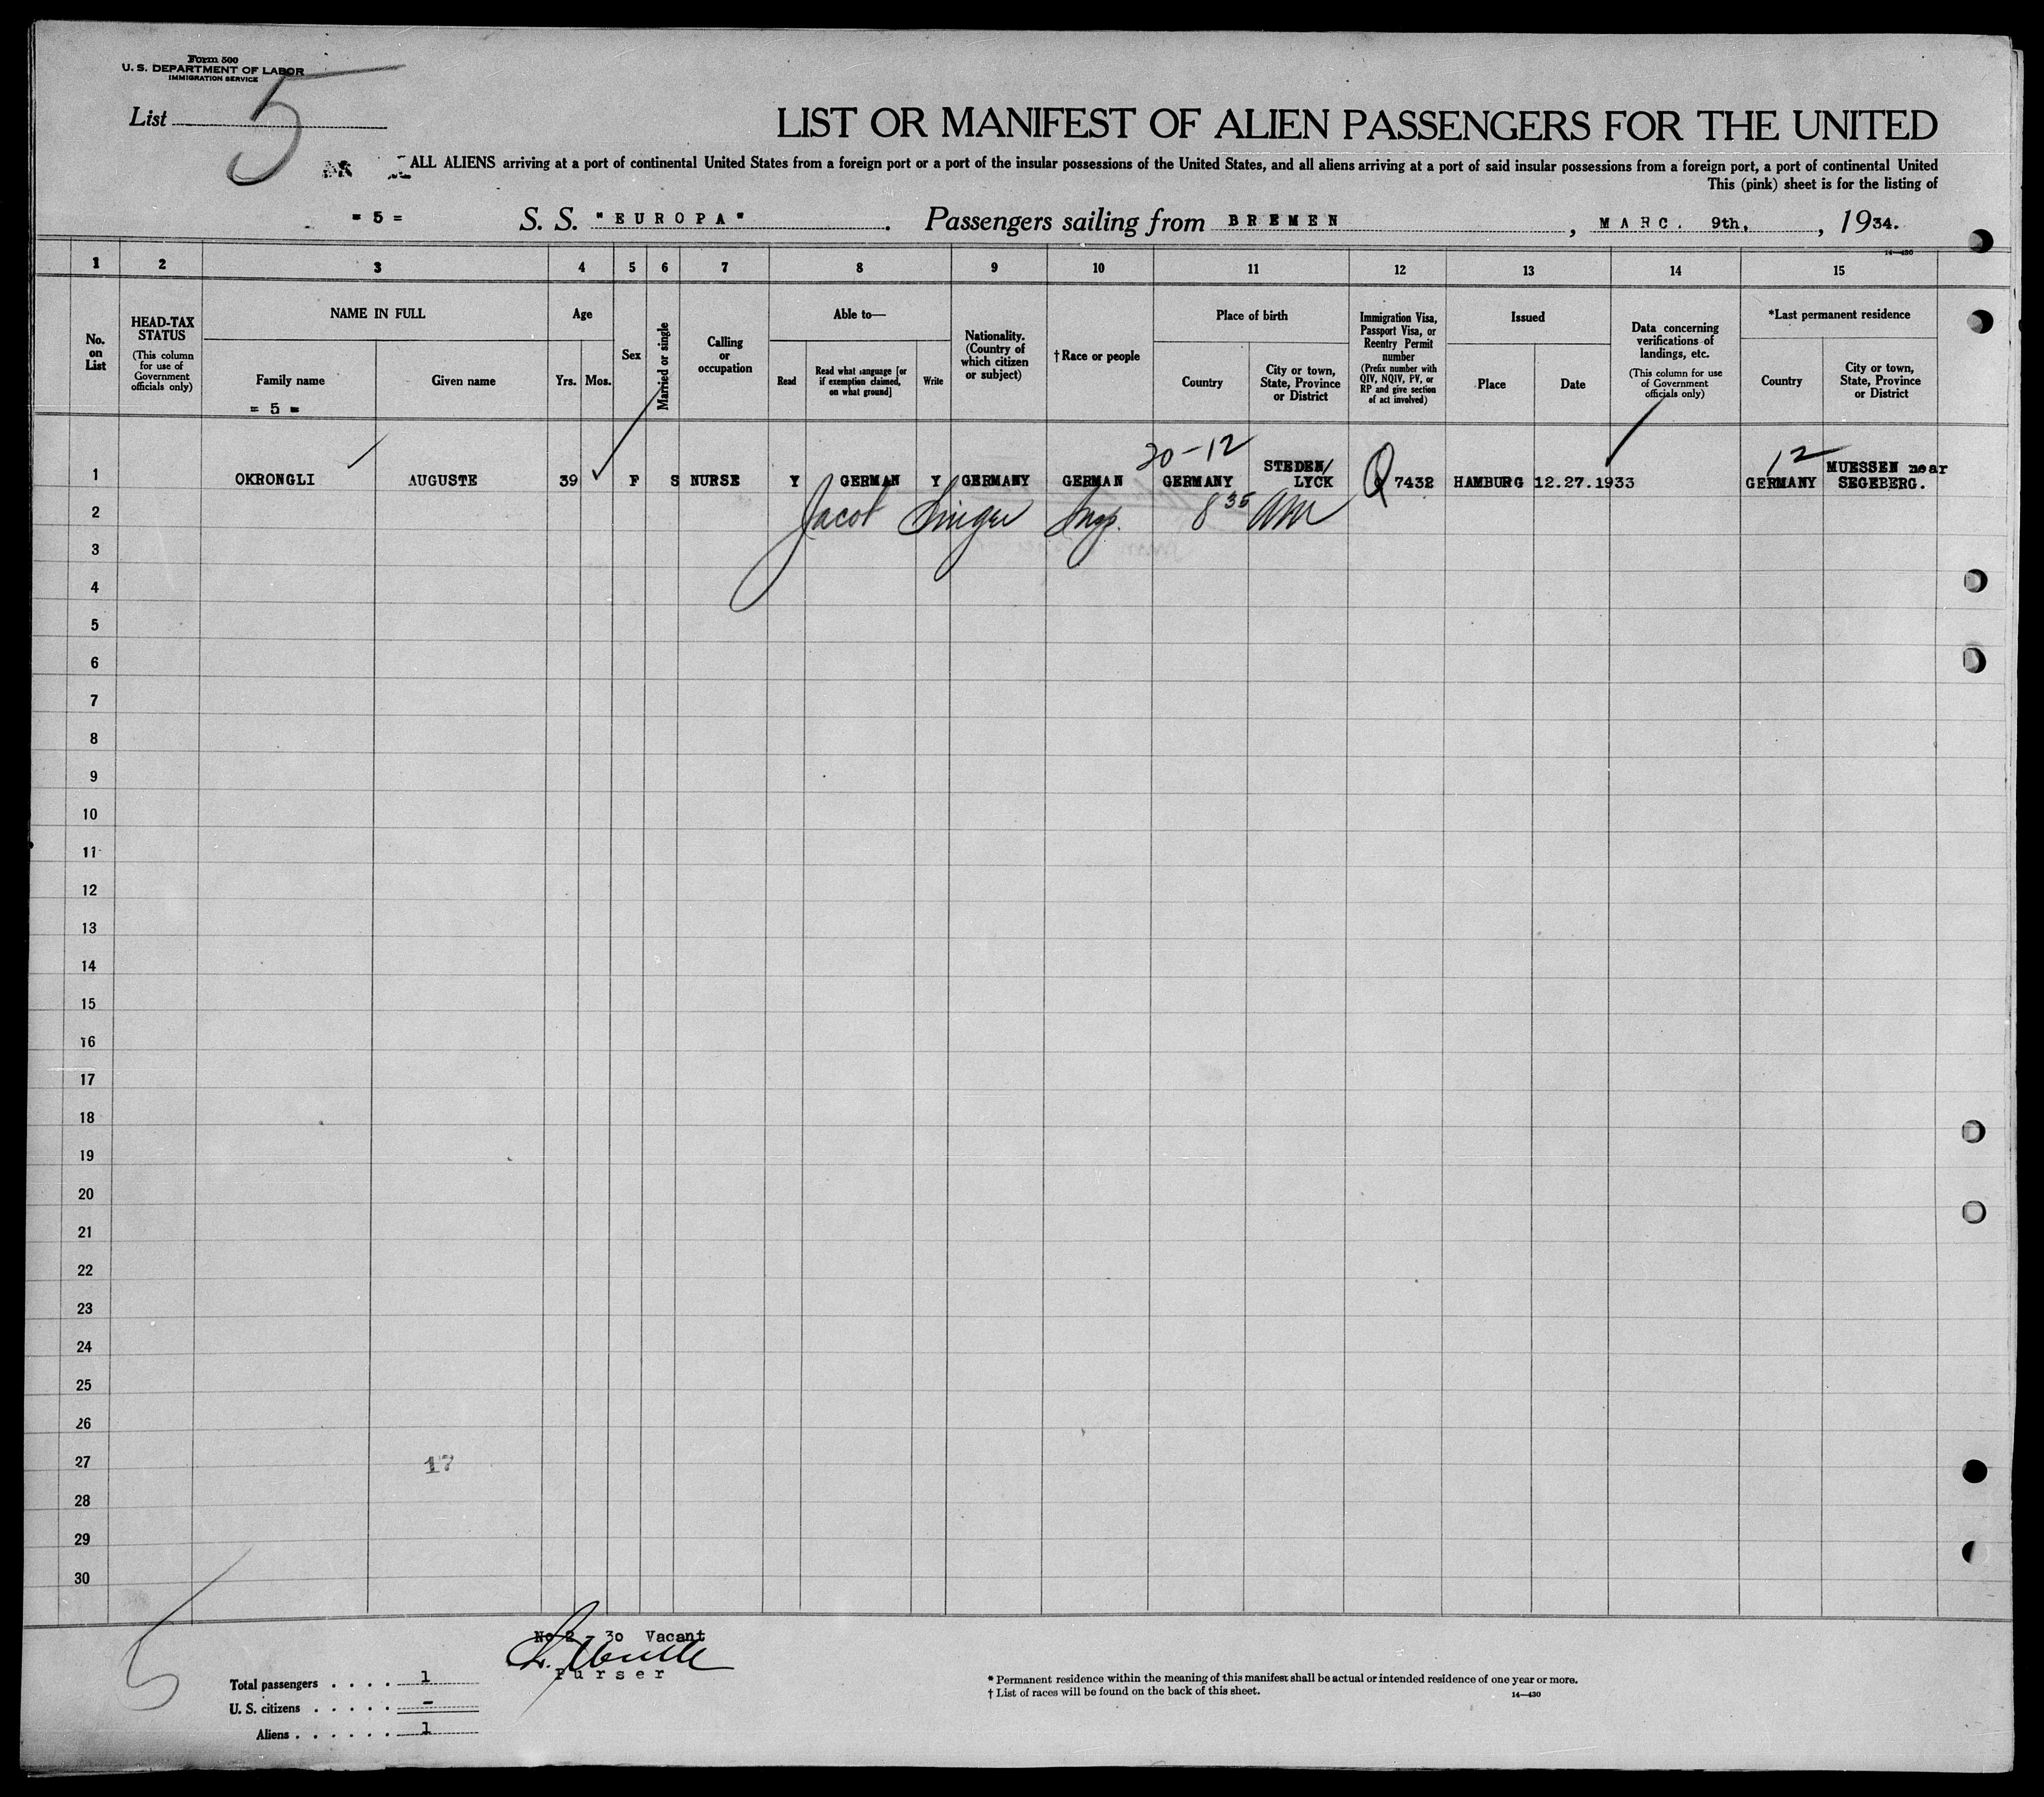 Form 500
U. S. DEPARTMENT OF LABOR
IMMIGRATION SERVICE
List 5
LIST OR MANIFEST OF ALIEN PASSENGERS FOR THE UNITED
ALL ALIENS arriving at a port of continental United States from a foreign port or a port of the insular possessions of the United States, and all aliens arriving at a port of said insular possessions from a foreign port, a port of continental United
This (pink) sheet is for the listing of
= 5 = S. S. "EUROPA". Passengers sailing from BREMEN, MARC. 9th, , 1934.
14—430
1 2 3 4 5 6 7 8 9 10 11 12 13 14 15
No. on List
HEAD-TAX STATUS
(This column for use of Government officials only)
NAME IN FULL
Family name
Given name
= 5 =
Age
Yrs. Mos.
Sex
Married or single
Calling or occupation
Able to—
Read
Read what language [or if exemption claimed, on what ground]
Write
Nationality. (Country of which citizen or subject)
† Race or people
Place of birth
Country
City or town, State, Province or District
Immigration Visa, Passport Visa, or Reentry Permit number
(Prefix number with QIV, NQIV, PV, or RP and give section of act involved)
Issued
Place
Date
Data concerning verifications of landings, etc.
(This column for use of Government officials only)
*Last permanent residence
Country
City or town, State, Province or District
20-12
12
1 OKRONGLI AUGUSTE 39 F S NURSE Y GERMAN Y GERMANY GERMAN GERMANY STEDEN/ LYCK Q 7432 HAMBURG 12.27.1933 GERMANY MUESSEN near SEGEBERG.
2 Jacob Singer Insp. 8 35 AM
3
4
5
6
7
8
9
10
11
12
13
14
15
16
17
18
19
20
21
22
23
24
25
26
27 17
28
29
30
5
No 2 - 30 Vacant
Purser
Total passengers . . . . 1
U. S. citizens . . . . . -
Aliens . . . . . . 1
* Permanent residence within the meaning of this manifest shall be actual or intended residence of one year or more.
† List of races will be found on the back of this sheet.
14—430